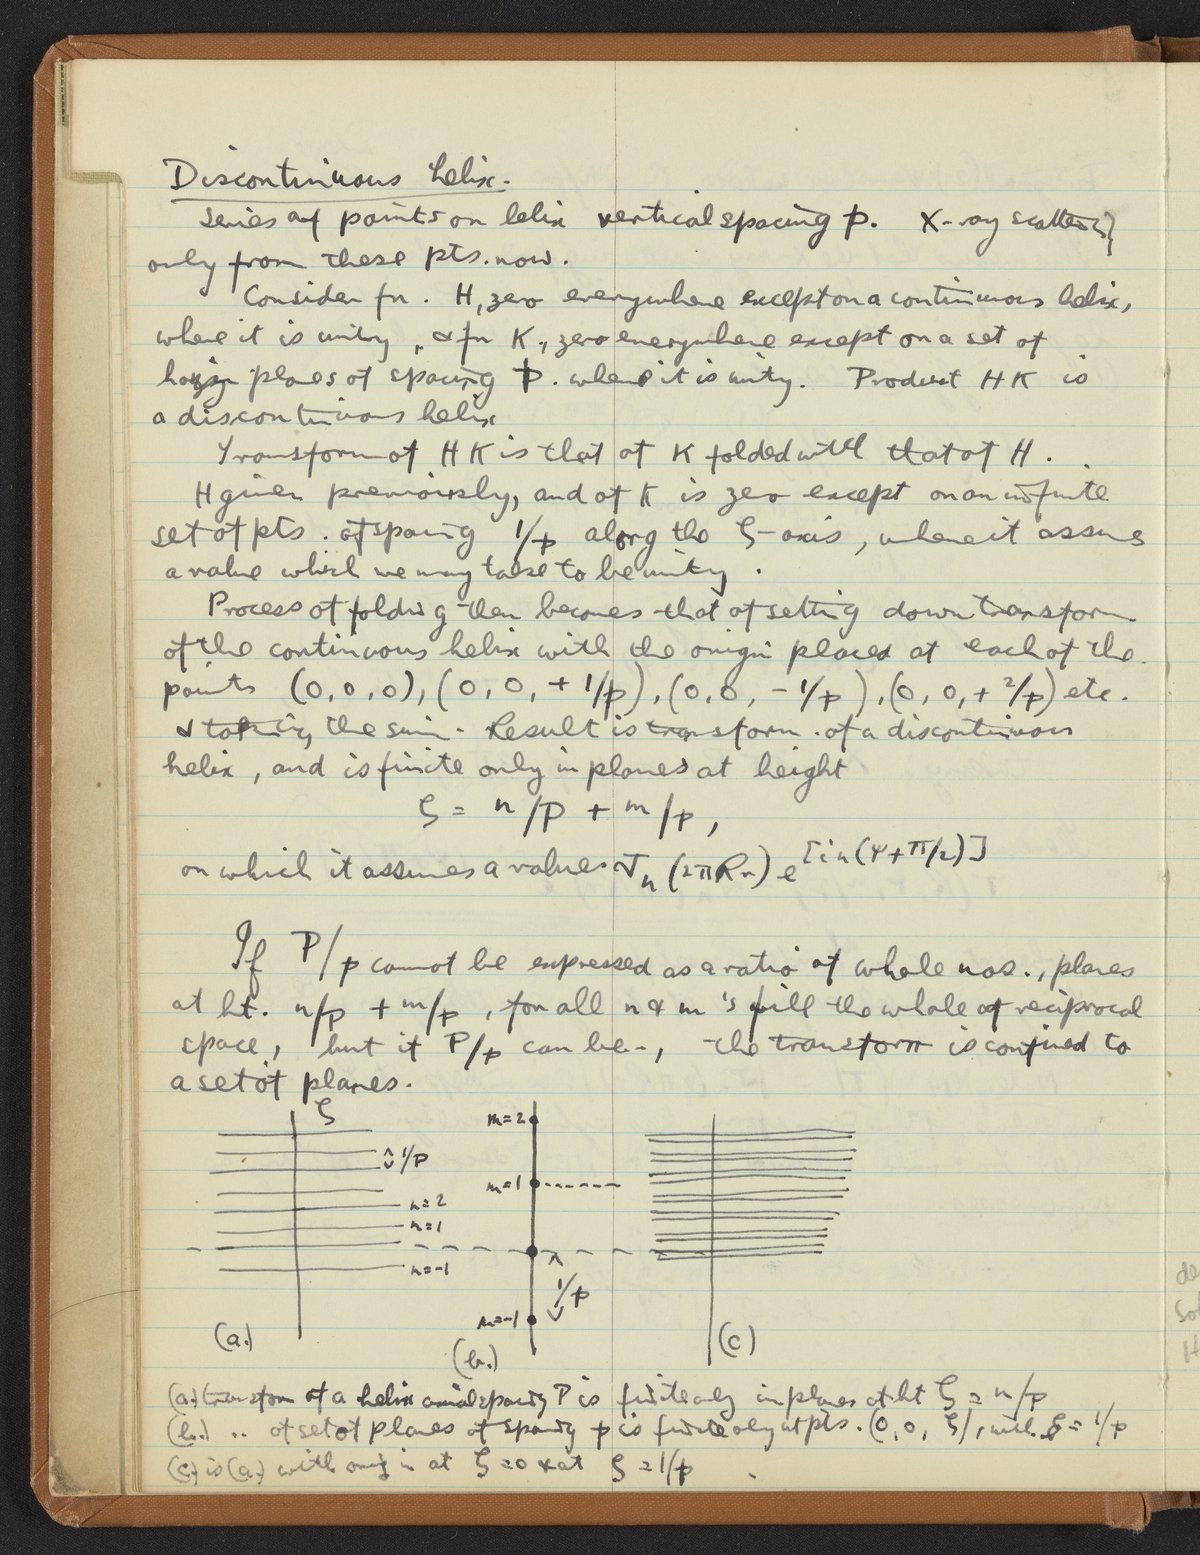 Discontinuous helix.
Series of points on helix vertical spacing p. X-ray scattering
only from these pts. now.
Consider fn. H, zero everywhere except on a continuous helix,
where it is unity, & fn K, zero everywhere except on a set of
horiz planes of spacing p. where it is unity. Product HK is
a discontinuous helix
Transform of HK is that of K folded with that of H.
H given previously, and of K is zero except on an infinite
set of pts. of spacing 1/p along the ζ-axis, where it assumes
a value which we may take to be unity.
Process of folding then becomes that of setting down transform
of the continuous helix with the origin placed at each of the
points (0,0,0), (0,0,+1/p), (0,0,-1/p), (0,0,+2/p) etc.
& taking the sum. Result is transform of a discontinuous
helix, and is finite only in planes at height
ζ = n/P + m/p,
on which it assumes a values Jn (2πRr) e [in(Ψ+π/2)]
If P/p cannot be expressed as a ratio of whole nos., planes
at ht. n/P + m/p, for all n & m's fill the whole of reciprocal
space, but if P/p can be, the transform is confined to
a set of planes.
ζ
m=2
1/P
m=1
n=2
n=1
n=-1
1/p
m=-1
(a.)
(b.)
(c)
(a.) transform of a helix axial spacing P is finite only in planes at ht ζ = n/P
(b.) .. of set of planes of spacing p is finite only at pts. (0,0,ζ), with ζ = 1/p
(c.) is (a.) with origin at ζ=0 & at ζ=1/p